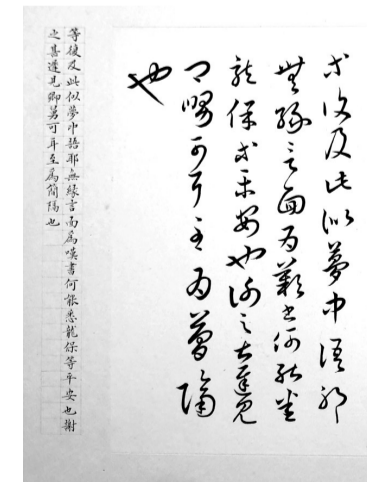 等復及此似夢中語耶
無緣言面為歎書何能悉
龍保等平安也謝之甚遲見
卿舅可耳至為簡隔
也
等復及此似夢中語耶無緣言面為嘆書何能悉龍保等平安也謝
之甚遲見卿舅可耳至為簡隔也